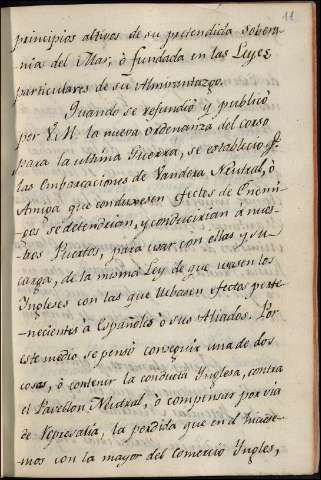 11
principios altivos de su pretendida sobera-
nia del Mar, ò fundada en las Leyes
particulares de su Almirantazgo.
Quando se refundiò y publicò
por V.M. la nueva ordenanza del corso
para la ultima Guerra, se estableciò q.e
las Embarcaciones de Vandera Neutral, ò
Amiga que conduxesen efectos de Enemi-
gos se detendrian, y conducirian à nues-
tros Puertos, para usar con ellas y su
carga, de la misma Ley de que usasen los
Yngleses con las que llebasen efectos perte-
necientes à Españoles ò sus Aliados. Por
este medio se pensò conseguir una de dos
cosas, ò contener la conducta Ynglesa, contra
el Pavellon Neutral, ò compensar por via
de Represalia, la perdida que en el hiciese-
mos con la mayor del Comercio Yngles,